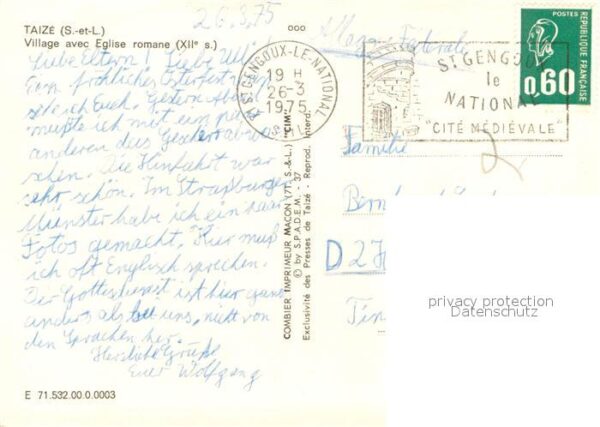 26.3.75
TAIZÉ (S.-et-L.)
Village avec Eglise romane (XIIe s.)
Liebe Eltern! Liebe
Ein fröhliches Osterfest
Euch. Gestern Abend
mußte ich mit ein paar
anderen das Geschirr abwa-
schen. Die Hinfahrt war
sehr schön. Im Straßburger
Münster habe ich ein paar
Fotos gemacht. Hier muß
ich oft Englisch sprechen.
Der Gottesdienst ist hier ganz
anders als bei uns, nicht von
den Sprachen her.
Herzliche Grüße
Euer Wolfgang
E 71.532.00.0.0003
COMBIER IMPRIMEUR MACON (71, S.-&-L.) "CIM"
© by S.P.A.D.E.M. - 37
Exclusivité des Presses de Taizé - Reprod. Interd.
ST GENGOUX-LE-NATIONAL
19 H
26-3
1975
ST GENGOUX
le
NATIONAL
"CITÉ MÉDIÉVALE"
POSTES
RÉPUBLIQUE FRANÇAISE
0,60
Familie
privacy protection
Datenschutz